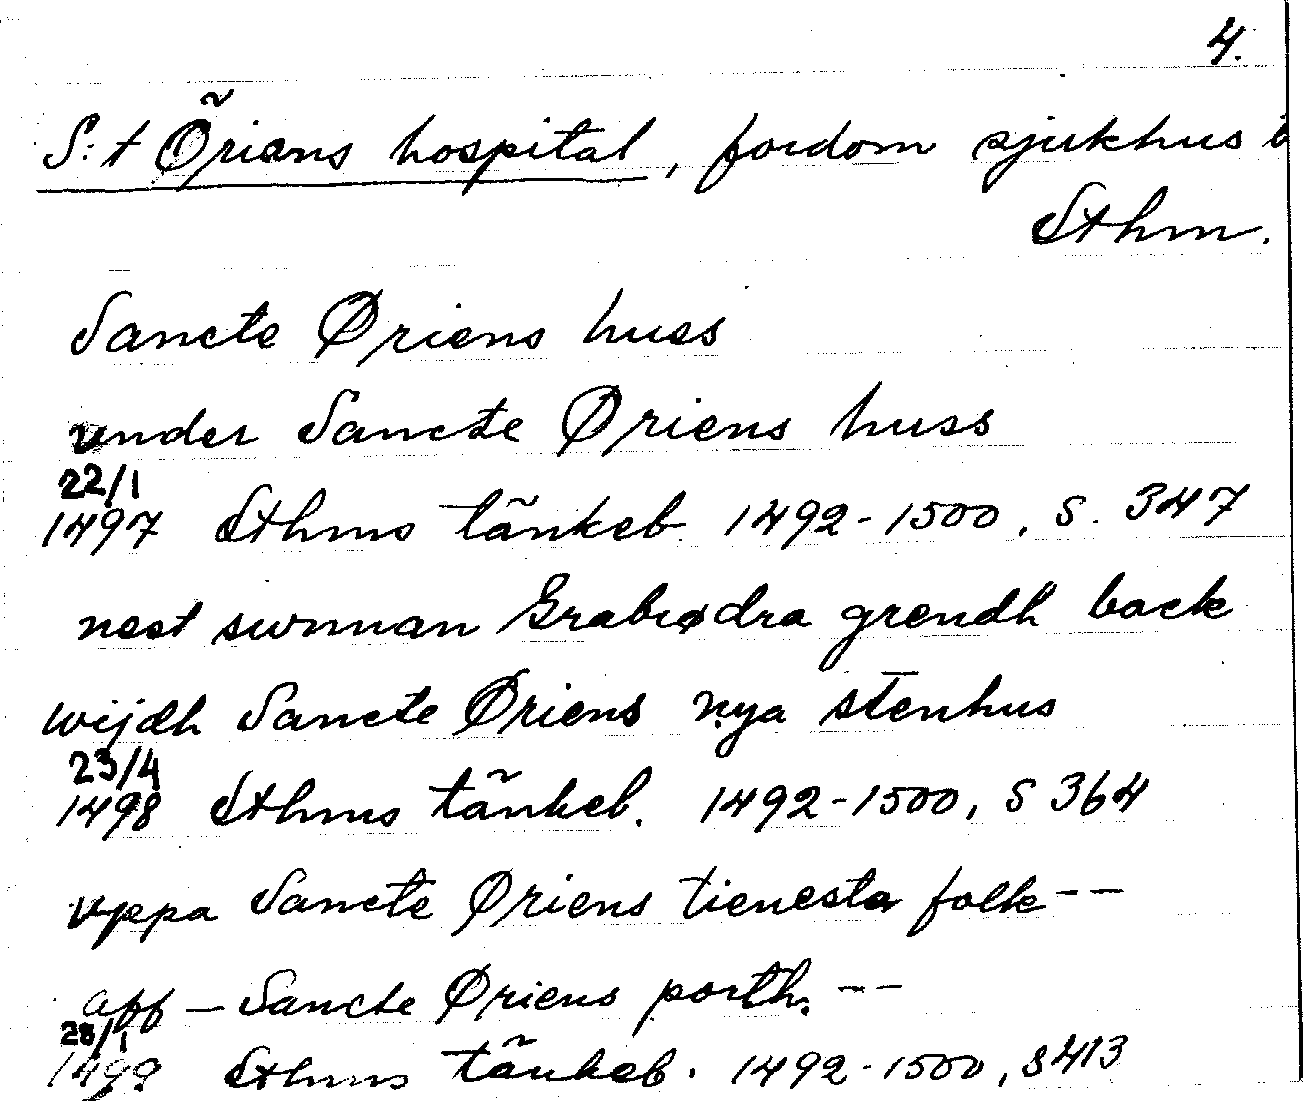 4.
S:t Örians hospital, fordom sjukhus i
Sthm.
Sancte Øriens huss
vnder Sancte Øriens huss
22/1
1497 Sthms tänkeb. 1492-1500, S. 347
nest swnnan Grabrødra grendh back
wijdh Sancte Øriens nya stenhus
23/4
1498 Sthms tänkeb. 1492-1500, S 364
vppa Sancte Øriens tienesta folk--
aff - Sancte Øriens porth. --
28/1
1499 Sthms tänkeb. 1492-1500, S 413